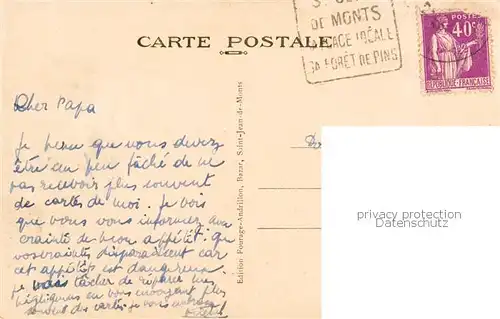 CARTE POSTALE
DE MONTS
PLAGE IDÉALE
SA FORÊT DE PINS
POSTES
40c
RÉPUBLIQUE FRANÇAISE
Cher Papa
Je pense que vous devez
être un peu fâché de ne
pas recevoir plus souvent
de cartes de moi. Je vois
que vous vous informez
crainte de mon appétit. que
vos craintes disparaissent car
cet appétit est dangereux.
Je vais tâcher de réparer mes
négligences en vous envoyant plus
souvent des cartes. Je vous embrasse
Edition Fourage-Andrillon, Bazar, Saint-Jean-de-Monts
privacy protection
Datenschutz